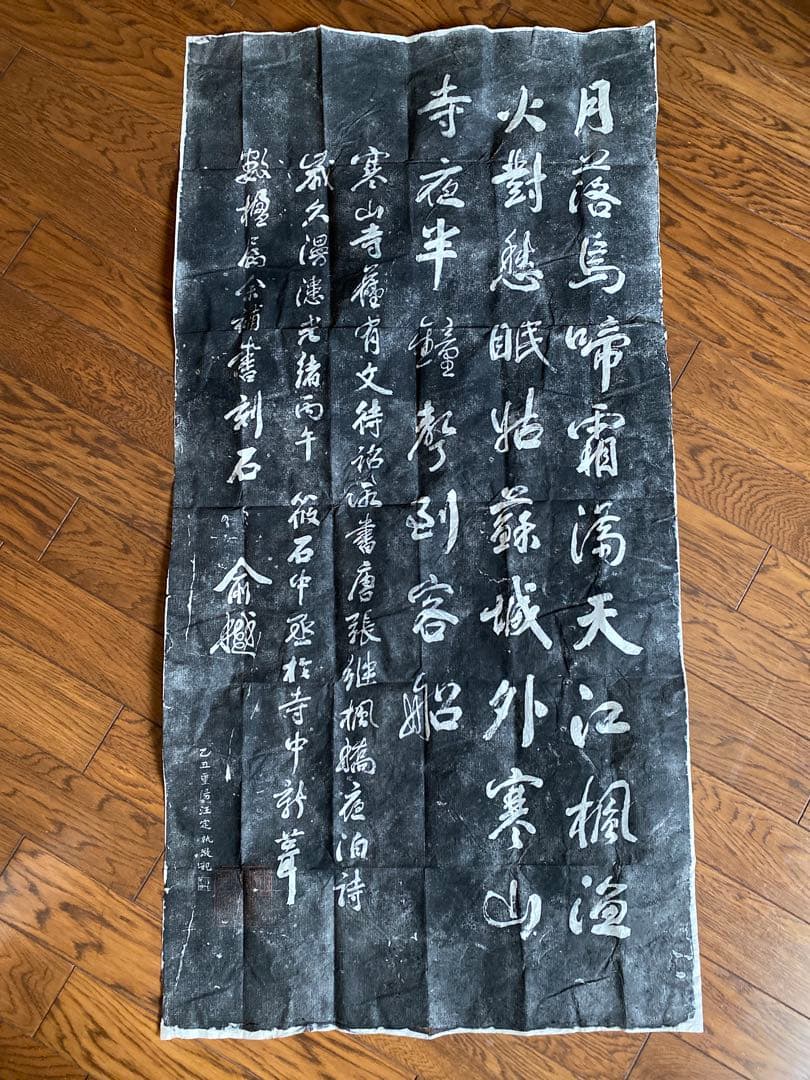 月落烏啼霜滿天江楓漁
火對愁眠姑蘇城外寒山
寺夜半鐘聲到客船
寒山寺舊有文待詔所書唐張継楓橋夜泊詩
歲久漫漶光緒丙午 筱石中丞於寺中新葺
數楹屬余補書刻石 俞樾
乙丑重陽汪定執敬